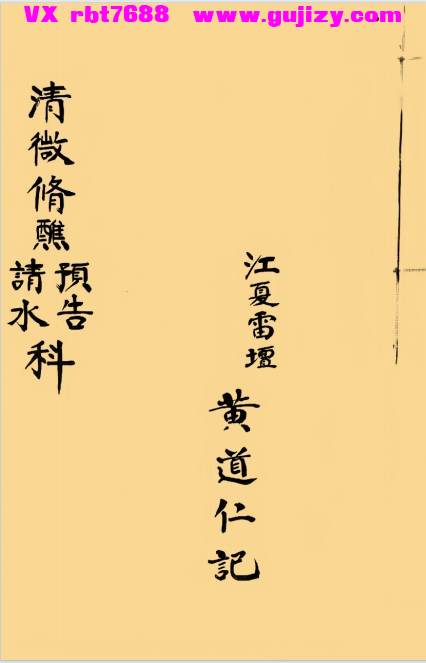 VX rbt7688 www.gujizy.com
江夏雷壇
黄道仁記
清微脩醮預告請水科